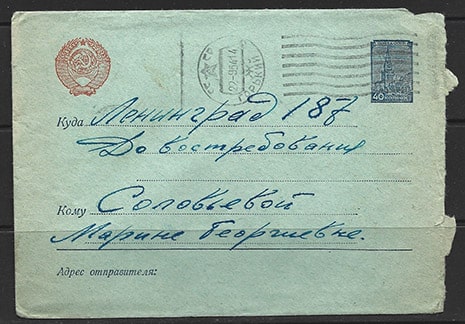 40
Куда Ленинград 187
До востребования
Кому Соловьевой
Марине Георгиевне.
Адрес отправителя: